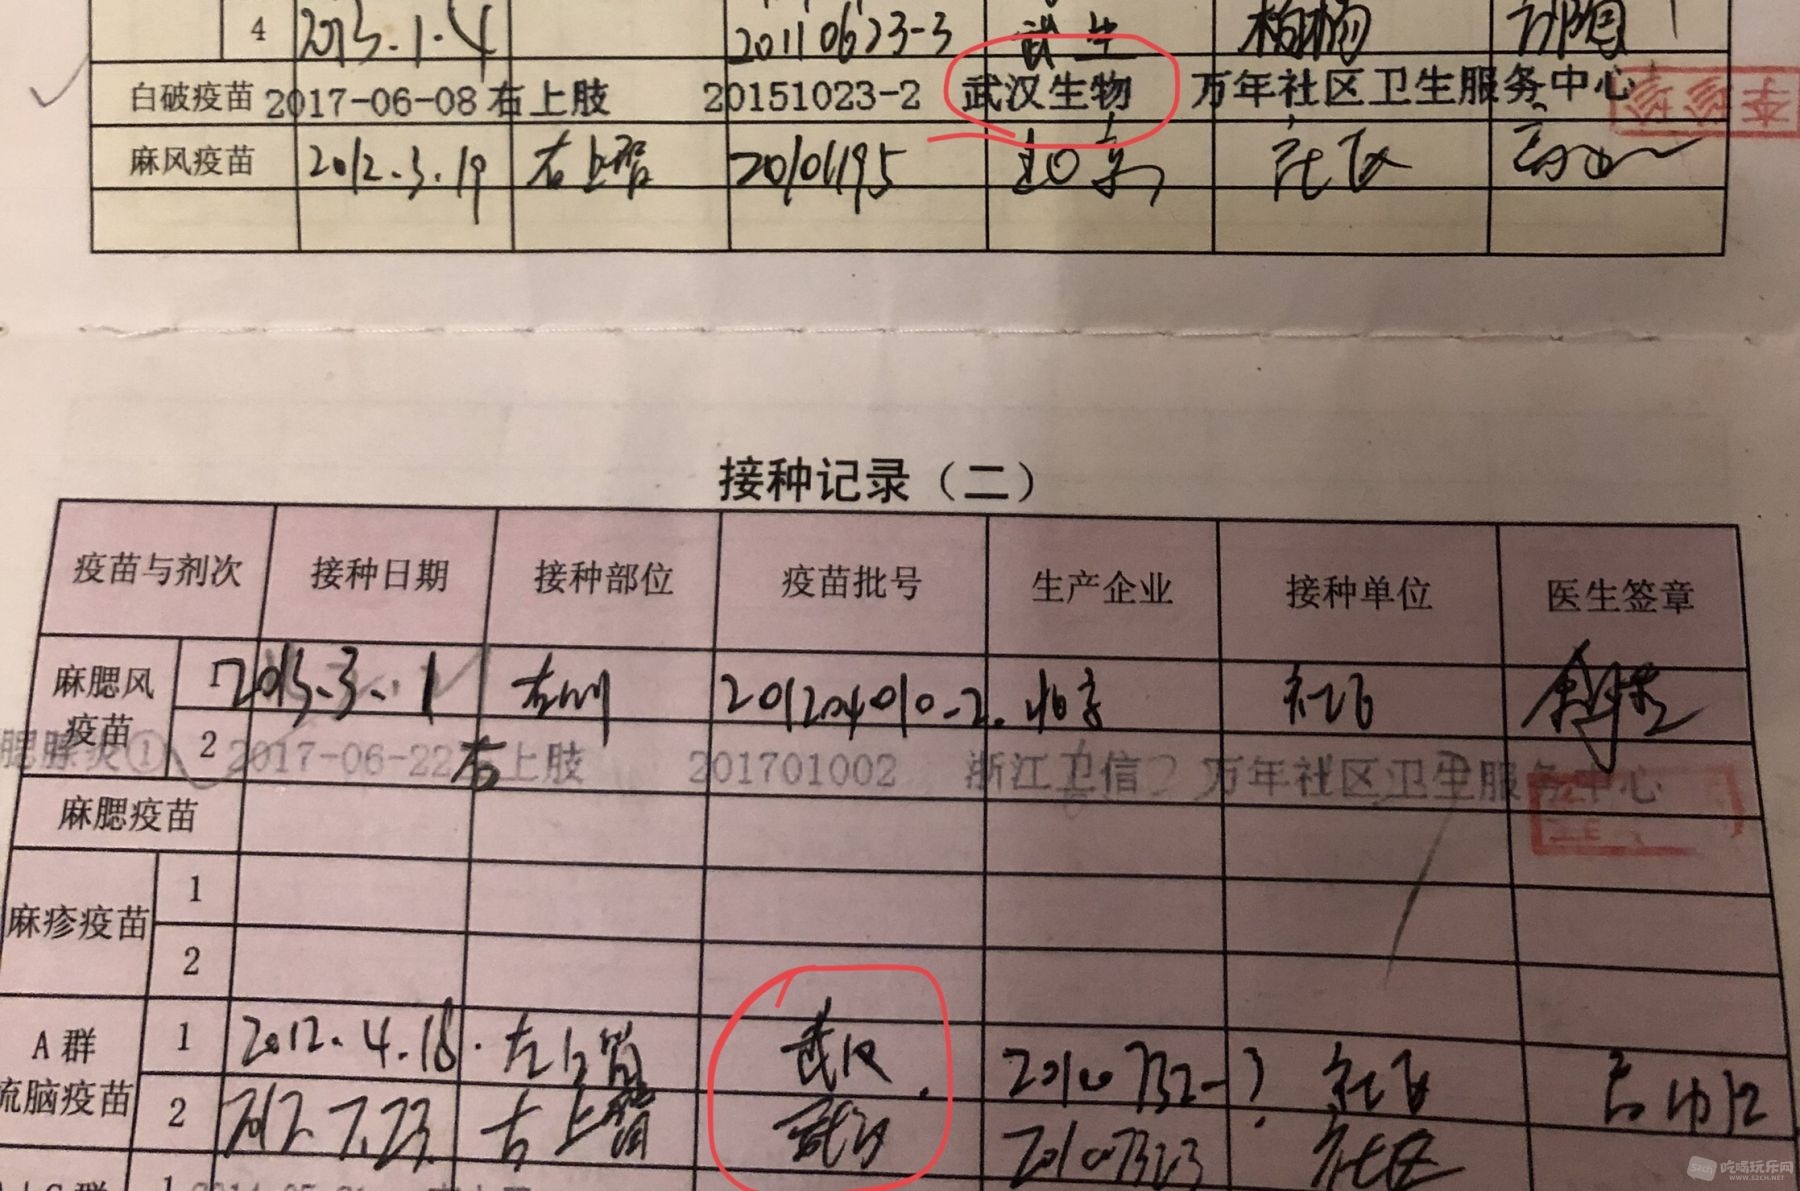 4 2013.1.4 20110623-3 武生
白破疫苗 2017-06-08 右上肢 20151023-2 武汉生物 万年社区卫生服务中心
麻风疫苗 2012.3.19 右上臂 20101195 北京 社区
接种记录（二）
疫苗与剂次 接种日期 接种部位 疫苗批号 生产企业 接种单位 医生签章
麻腮风疫苗 1 2013.3.1 201204010-2 北京 社区
2
腮腺炎① 2017-06-22 右上肢 201701002 浙江卫信 万年社区卫生服务中心
麻腮疫苗
麻疹疫苗 1
2
A群流脑疫苗 1 2012.4.18 左上臂 武汉 社区
2 2012.7.23 右上臂 武汉 社区
1
吃喝玩乐网
WWW.52CH.NET